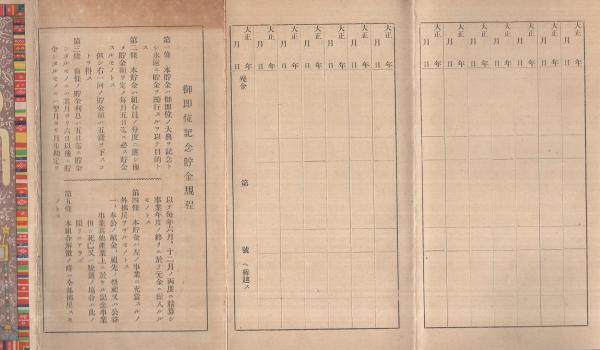 御即位記念貯金規程
第一條 本貯金ハ御即位ノ大典ヲ記念ト
シ永遠ニ貯金ヲ勵行スルヲ以テ目的ト
ス
第二條 本貯金ハ組合員ノ分度ニ應シ豫
メ貯金額ヲ定メ毎月五日迄ニ必ス貯金
スルモノトス
但シ右一回ノ貯金額ハ五錢ヲ下スコ
トヲ得ス
第三條 前條ノ貯金利息ハ五日迄ニ貯金
シタルモノニハ當月ヨリ六日以後ニ貯
金シタルモノニハ翌月ヨリ月步
以テ毎年六月、十二月ノ兩度ニ精算シ
事業年度ノ終リニ於テ元金ニ組入ルル
モノトス
第四條 本貯金ハ左ノ事業ニ充當スルノ
外拂戻ヲサルモノトス
一、奉公ノ獻金、祖先ノ祭祀又ハ公益
事業其他產業上ニ於ケル記念事業
但シ死亡又ハ脫退ノ場合ハ此ノ
限リニアラズ
第五條 本組合解散ノ時ハ全部拂戻スモ
ノトス
大正 年 月 日
大正 年 月 日
大正 年 月 日
大正 年 月 日
大正 年 月 日
大正 年 月 日
大正 年 月 日
殘金 第 號ヘ繰越ス
大正 年 月 日
大正 年 月 日
大正 年 月 日
大正 年 月 日
大正 年 月 日
大正 年 月 日
大正 年 月 日